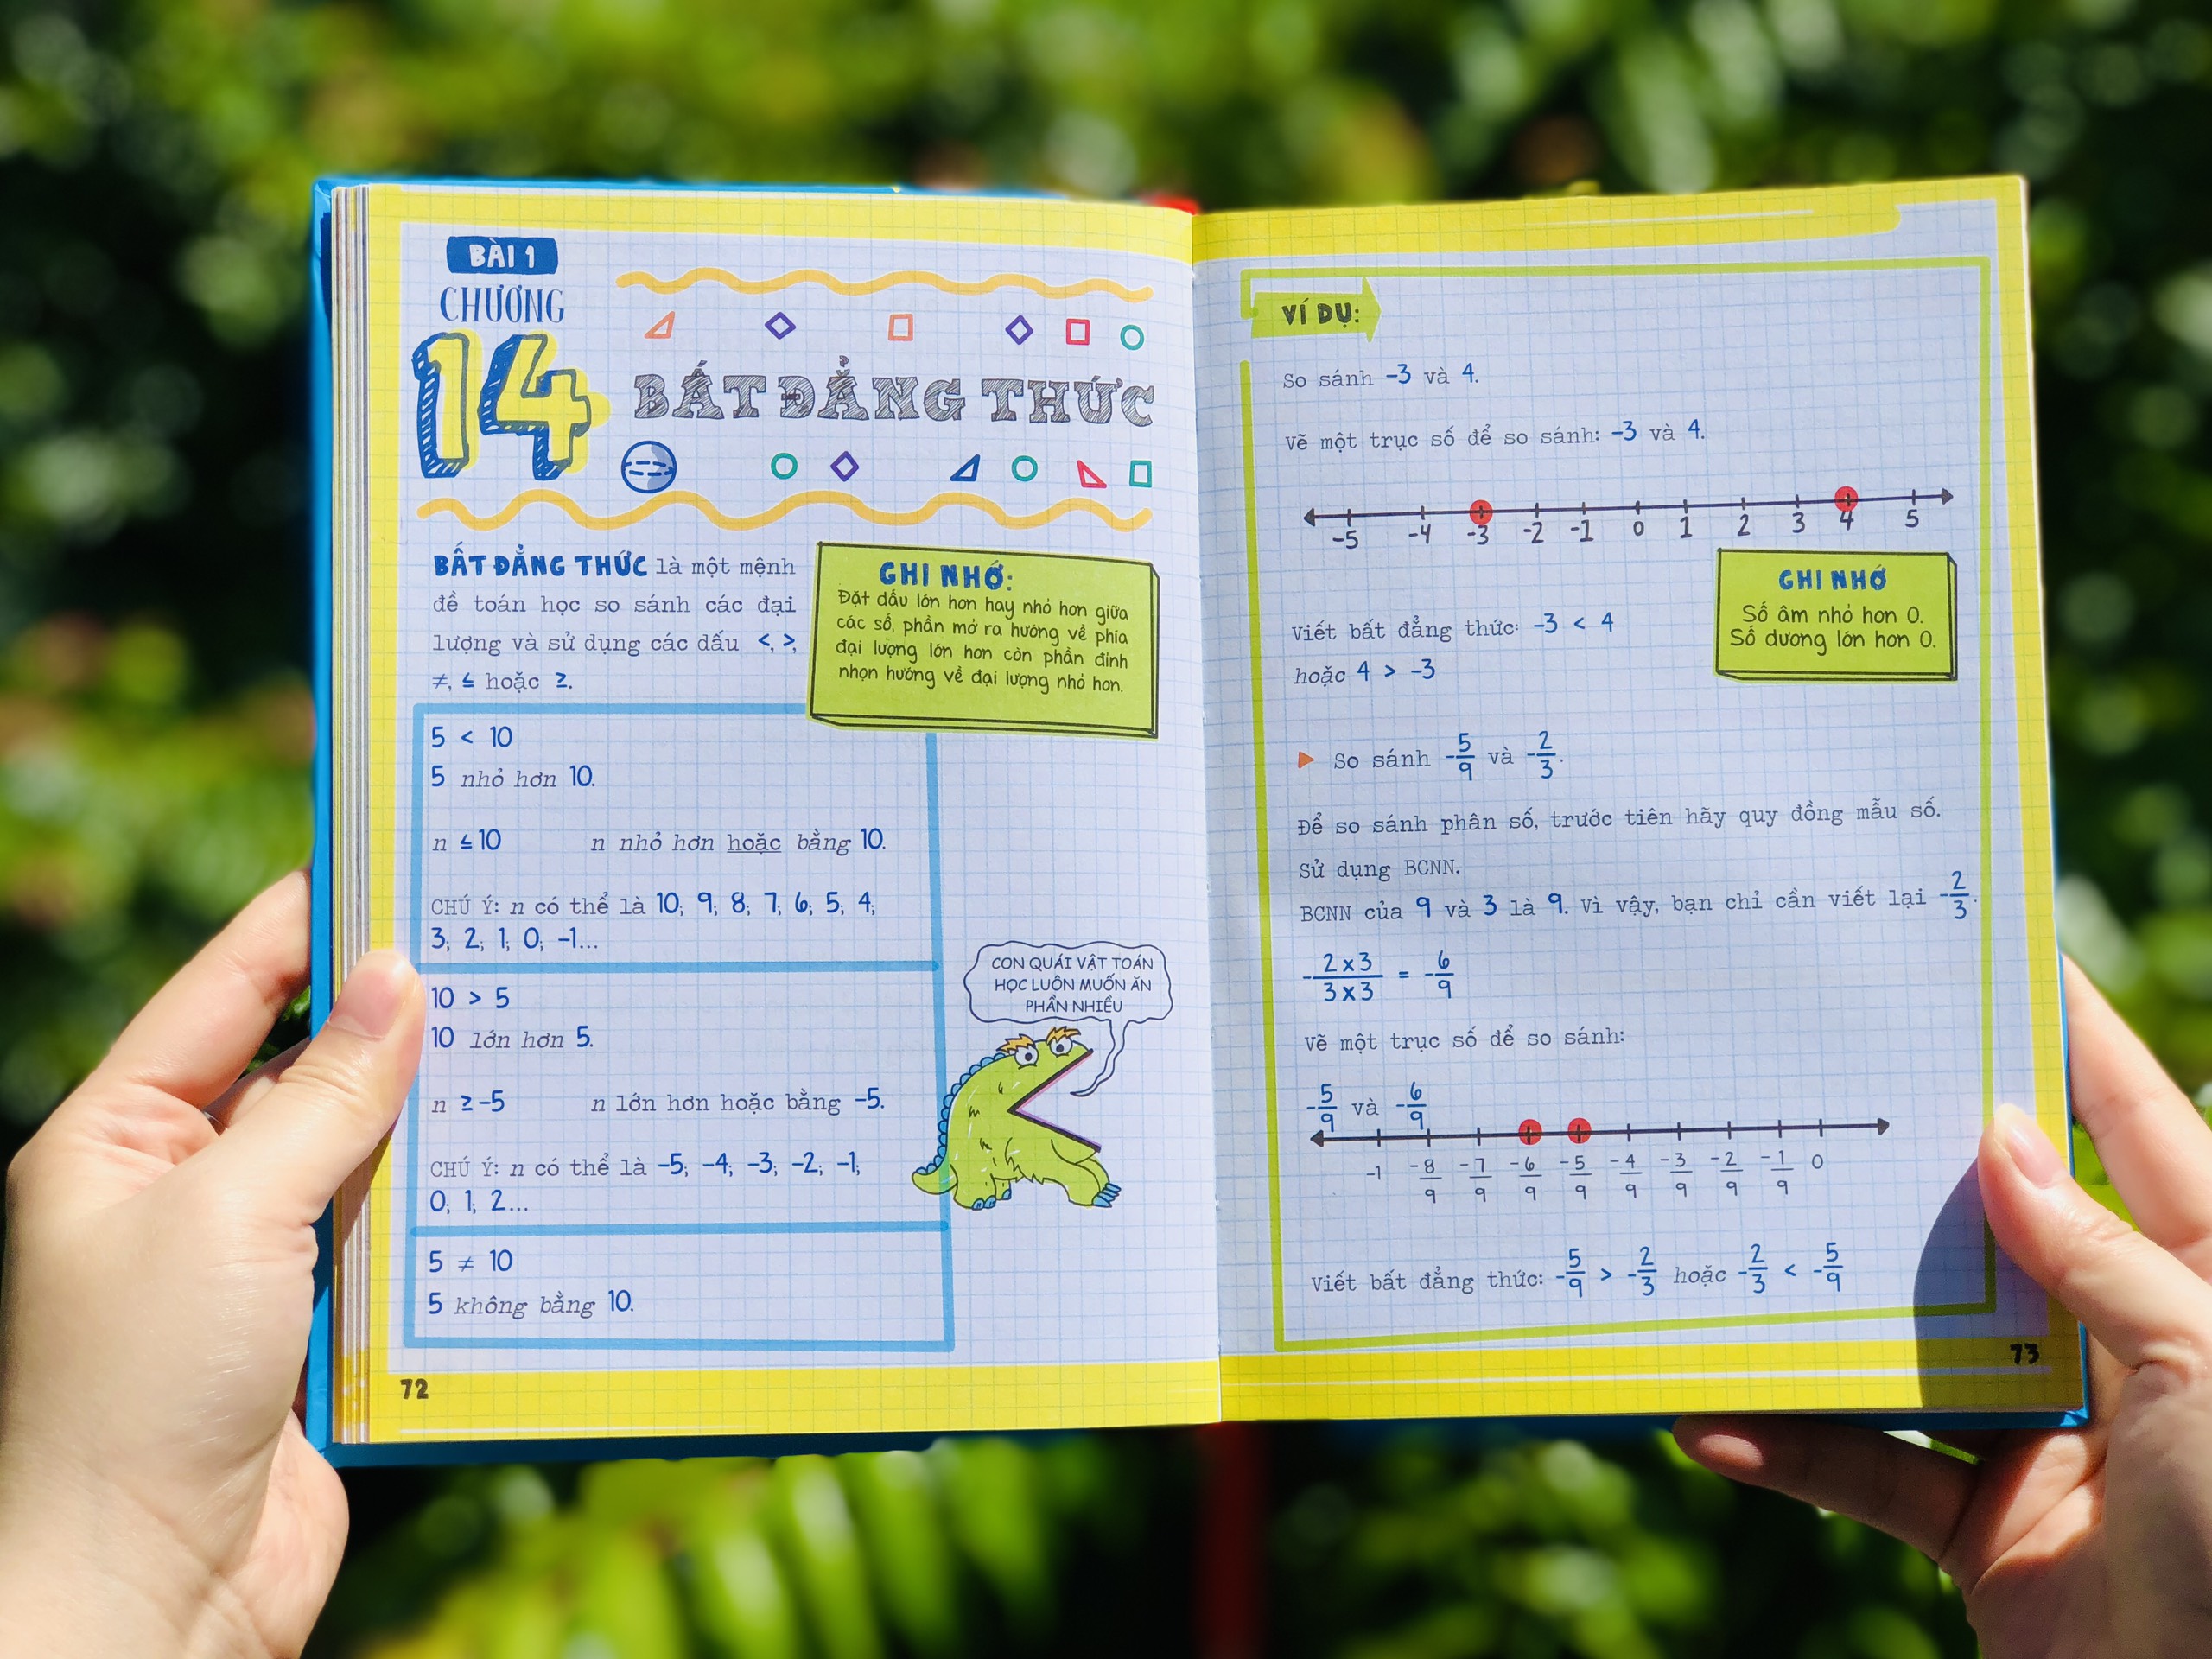 BÀI 1
CHƯƠNG
14
BẤT ĐẲNG THỨC
BẤT ĐẲNG THỨC là một mệnh
đề toán học so sánh các đại
lượng và sử dụng các dấu <, >,
≠, ≤ hoặc ≥.
GHI NHỚ:
Đặt dấu lớn hơn hay nhỏ hơn giữa
các số, phần mở ra hướng về phía
đại lượng lớn hơn còn phần đỉnh
nhọn hướng về đại lượng nhỏ hơn.
5 < 10
5 nhỏ hơn 10.
n ≤ 10 n nhỏ hơn hoặc bằng 10.
CHÚ Ý: n có thể là 10; 9; 8; 7; 6; 5; 4;
3; 2; 1; 0; -1...
10 > 5
10 lớn hơn 5.
n ≥ -5 n lớn hơn hoặc bằng -5.
CHÚ Ý: n có thể là -5; -4; -3; -2; -1;
0; 1; 2...
5 ≠ 10
5 không bằng 10.
CON QUÁI VẬT TOÁN
HỌC LUÔN MUỐN ĂN
PHẦN NHIỀU
72
VÍ DỤ:
So sánh -3 và 4.
Vẽ một trục số để so sánh: -3 và 4.
-5 -4 -3 -2 -1 0 1 2 3 4 5
Viết bất đẳng thức: -3 < 4
hoặc 4 > -3
GHI NHỚ
Số âm nhỏ hơn 0.
Số dương lớn hơn 0.
So sánh -5/9 và -2/3.
Để so sánh phân số, trước tiên hãy quy đồng mẫu số.
Sử dụng BCNN.
BCNN của 9 và 3 là 9. Vì vậy, bạn chỉ cần viết lại -2/3.
-2x3/3x3 = -6/9
Vẽ một trục số để so sánh:
-5/9 và -6/9
-1 -8/9 -7/9 -6/9 -5/9 -4/9 -3/9 -2/9 -1/9 0
Viết bất đẳng thức: -5/9 > -2/3 hoặc -2/3 < -5/9
73